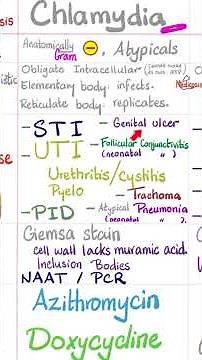 Chlamydia
Anatomically
Gram ⊖ , Atypicals
Obligate Intracellular
Elementary body: infects.
Reticulate body: replicates.
Medicosis
- STI - Genital ulcer
- UTI - Follicular Conjunctivitis
(neonatal " )
Urethritis/Cystitis
Pyelo - Trachoma
- PID - Atypical Pneumonia
(neonatal " ).
Giemsa stain
cell wall lacks muramic acid.
Inclusion Bodies
NAAT / PCR
Azithromycin
Doxycycline